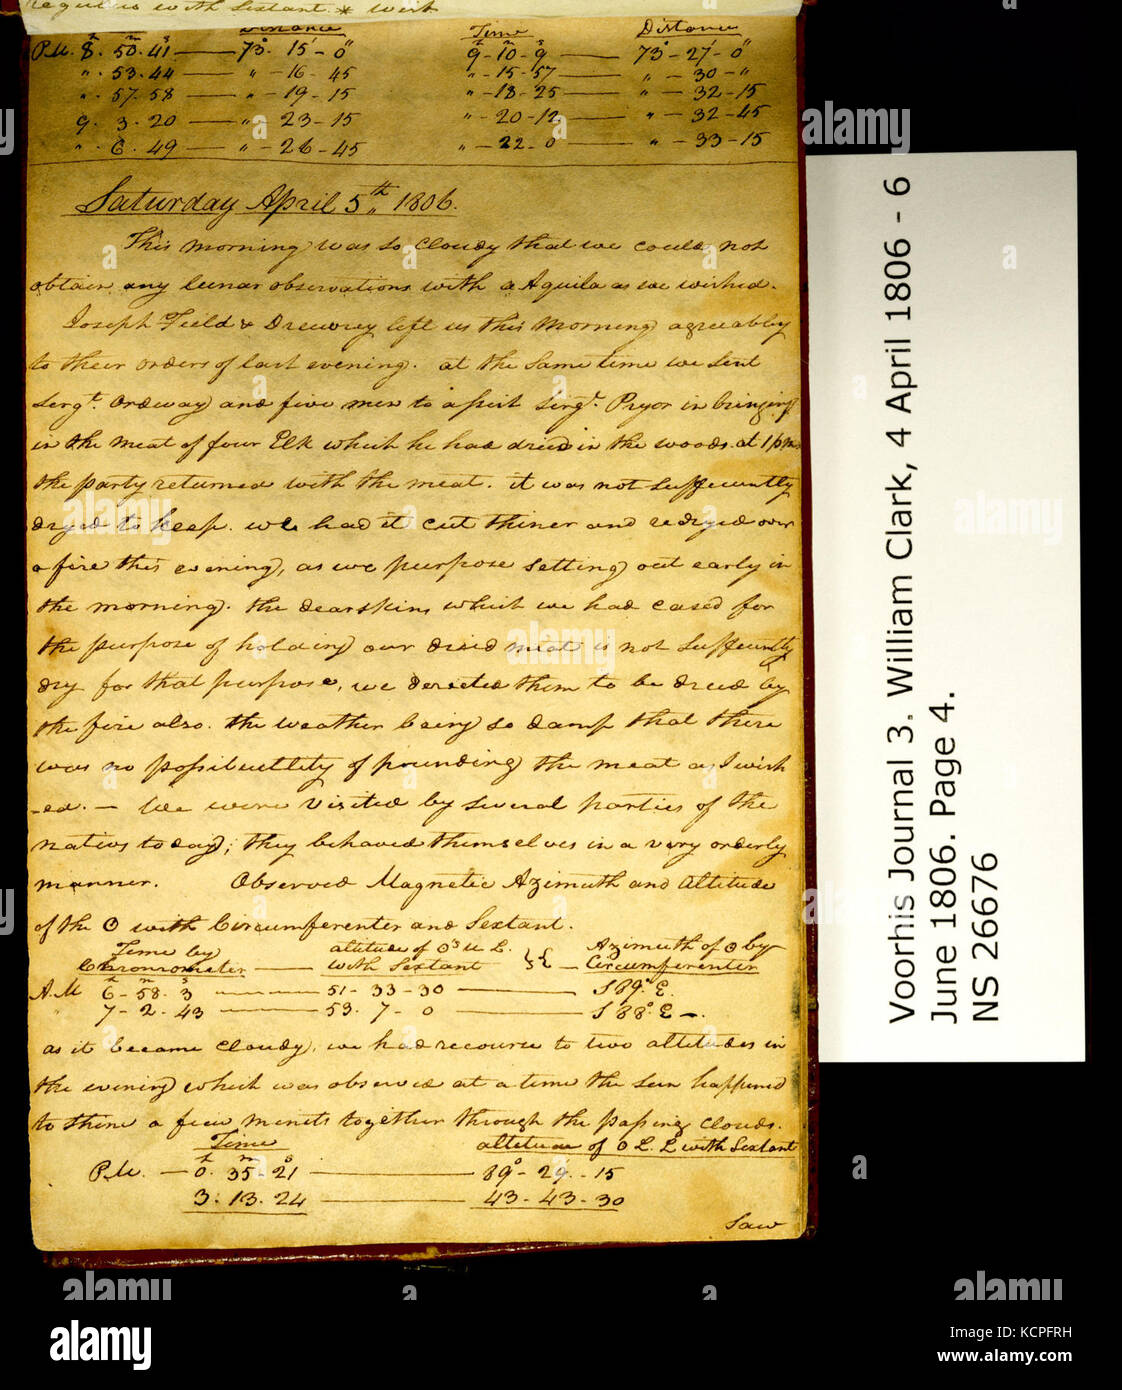 Regulus with Sextant. * West
Time Distance
P.M. 8h. 50m. 41s — 73° - 15' - 0" 9h - 10m - 9s — 73° - 27' - 0"
" . 53 . 44 — " - 16 - 45 " - 15 - 57 — " - 30 - "
" . 57 . 58 — " - 19 - 15 " - 18 - 25 — " - 32 - 15
9 . 3 . 20 — " - 23 - 15 " - 20 - 12 — " - 32 - 45
" . 6 . 49 — " - 26 - 45 " - 22 - 0 — " - 33 - 15
Saturday April 5th 1806.
This morning was so cloudy that we could not
obtain any lunar observations with a Aquila as we wished.
Joseph Field & Drewrey left us this morning agreeably
to their orders of last evening. at the Same time we sent
Sergt. Ordway and five men to assist Sergt. Pryor in bringing
in the meat of four Elk which he had dried in the woods. at 1 pm
the party returned with the meat. it was not suffecently
dryed to keep. we had it cut thiner and redryed over
a fire this evening, as we purpose setting out early in
the morning. the dearskins which we had cased for
the purpose of holding our dried meat is not suffecently
dry for that purpose, we derected them to be dried by
the fire also. the weather being so damp that there
was no possibuttlity of pounding the meat as I wish
-ed. — We were visited by several parties of the
nativs to day; they behaved themselves in a very orderly
manner. Observed Magnetic Azimuth and altitude
of the ʘ with Circumferenter and Sextant.
Time by altitude of ʘs U. L. }{ Azimuth of ʘ by
Chronometer — with Sextant — Circumferenter
A.M 6h - 58m . 3s — 51 - 33 - 30 — S 89° E.
7 - 2 . 43 — 53 . 7 - 0 — S 88° E —.
as it became cloudy, we had recourse to two altitudes in
the evening which was observed at a time the sun happened
to shine a fiew menits together through the passing clouds.
Time altitude of ʘ L. L with Sextant
P.M. — 0h. 35m - 21s — 89° - 29 . - 15
3 . 13 . 24 — 43 - 43 - 30
Saw
Voorhis Journal 3. William Clark, 4 April 1806 - 6
June 1806. Page 4.
NS 26676
alamy
a
Image ID: KCPFRH
www.alamy.com